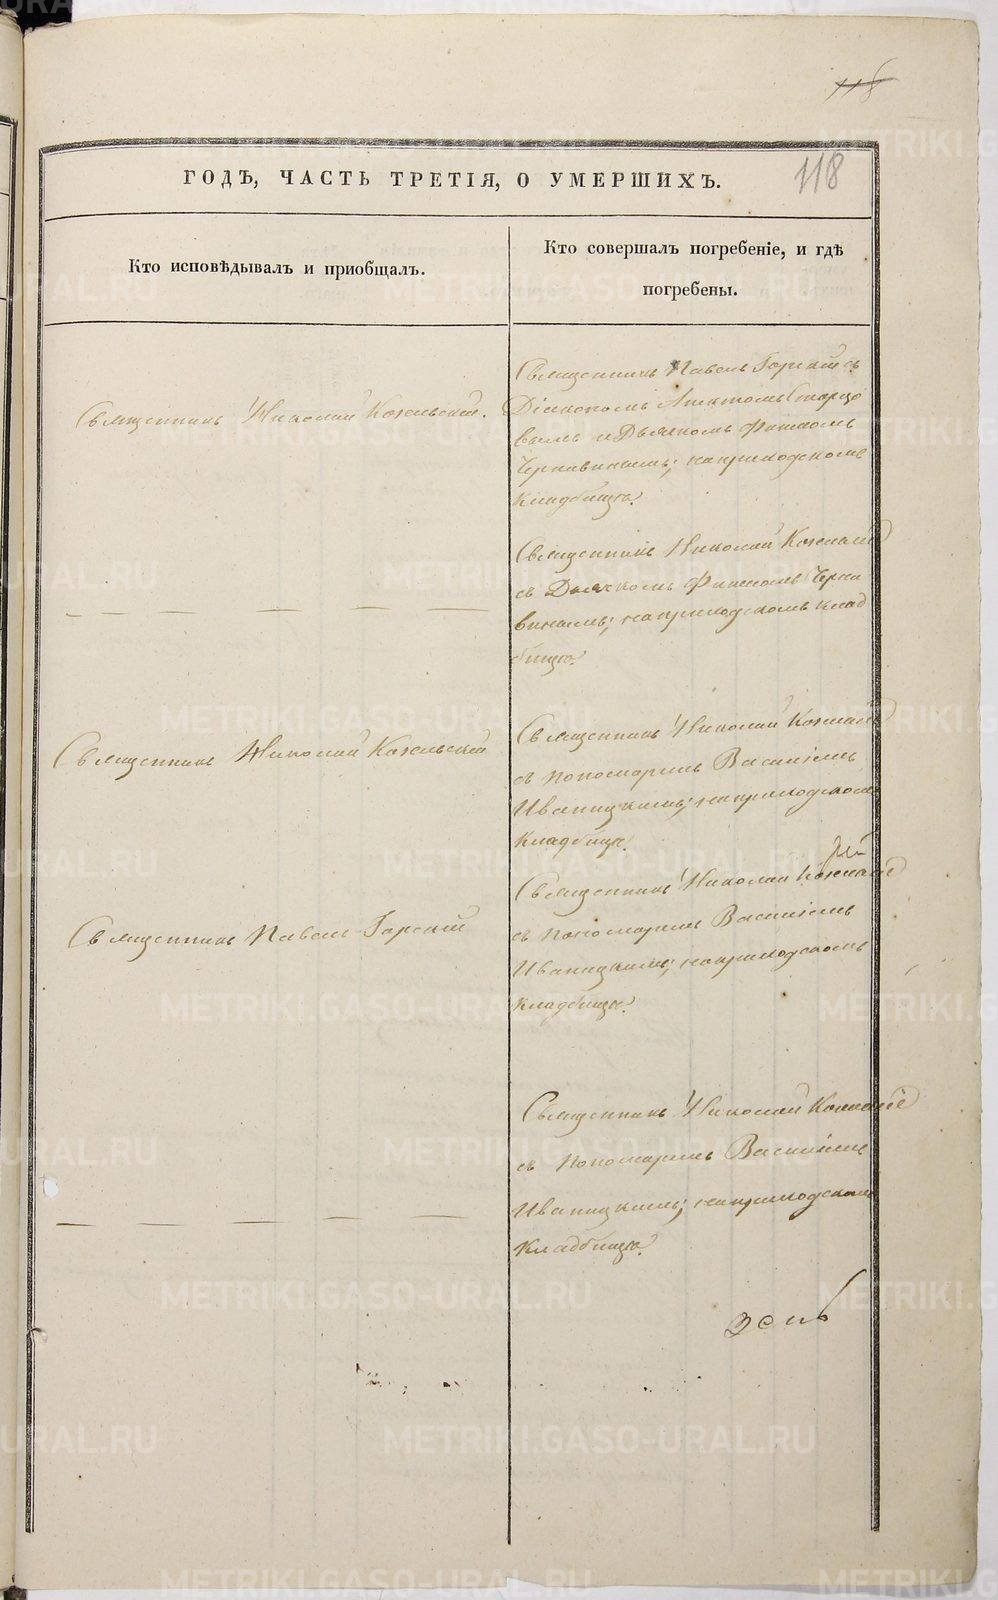 118
118
ГОДЪ, ЧАСТЬ ТРЕТІЯ, О УМЕРШИХЪ.
Кто исповѣдывалъ и приобщалъ.
Кто совершалъ погребеніе, и гдѣ
погребены.
Священникъ Николай Кожельскій.
Священникъ Павелъ Горскій съ
Діакономъ
и Дьячкомъ Филипомъ
Чернавинымъ; на приходскомъ
кладбищѣ.
Священникъ Николай
съ Дьячкомъ Филипомъ Черна
винымъ; на приходскомъ клад
бищѣ.
Священникъ Николай Кожельскій
Священникъ Николай
съ пономаремъ Василіемъ
Иваницкимъ; на приходскомъ
кладбищѣ.
Священникъ Павелъ Горскій
Священникъ Николай
съ пономаремъ Василіемъ
Иваницкимъ; на приходскомъ
кладбищѣ.
Священникъ Николай
съ пономаремъ Василіемъ
Иваницкимъ; на приходскомъ
кладбищѣ.
METRIKI.GASO-URAL.RU